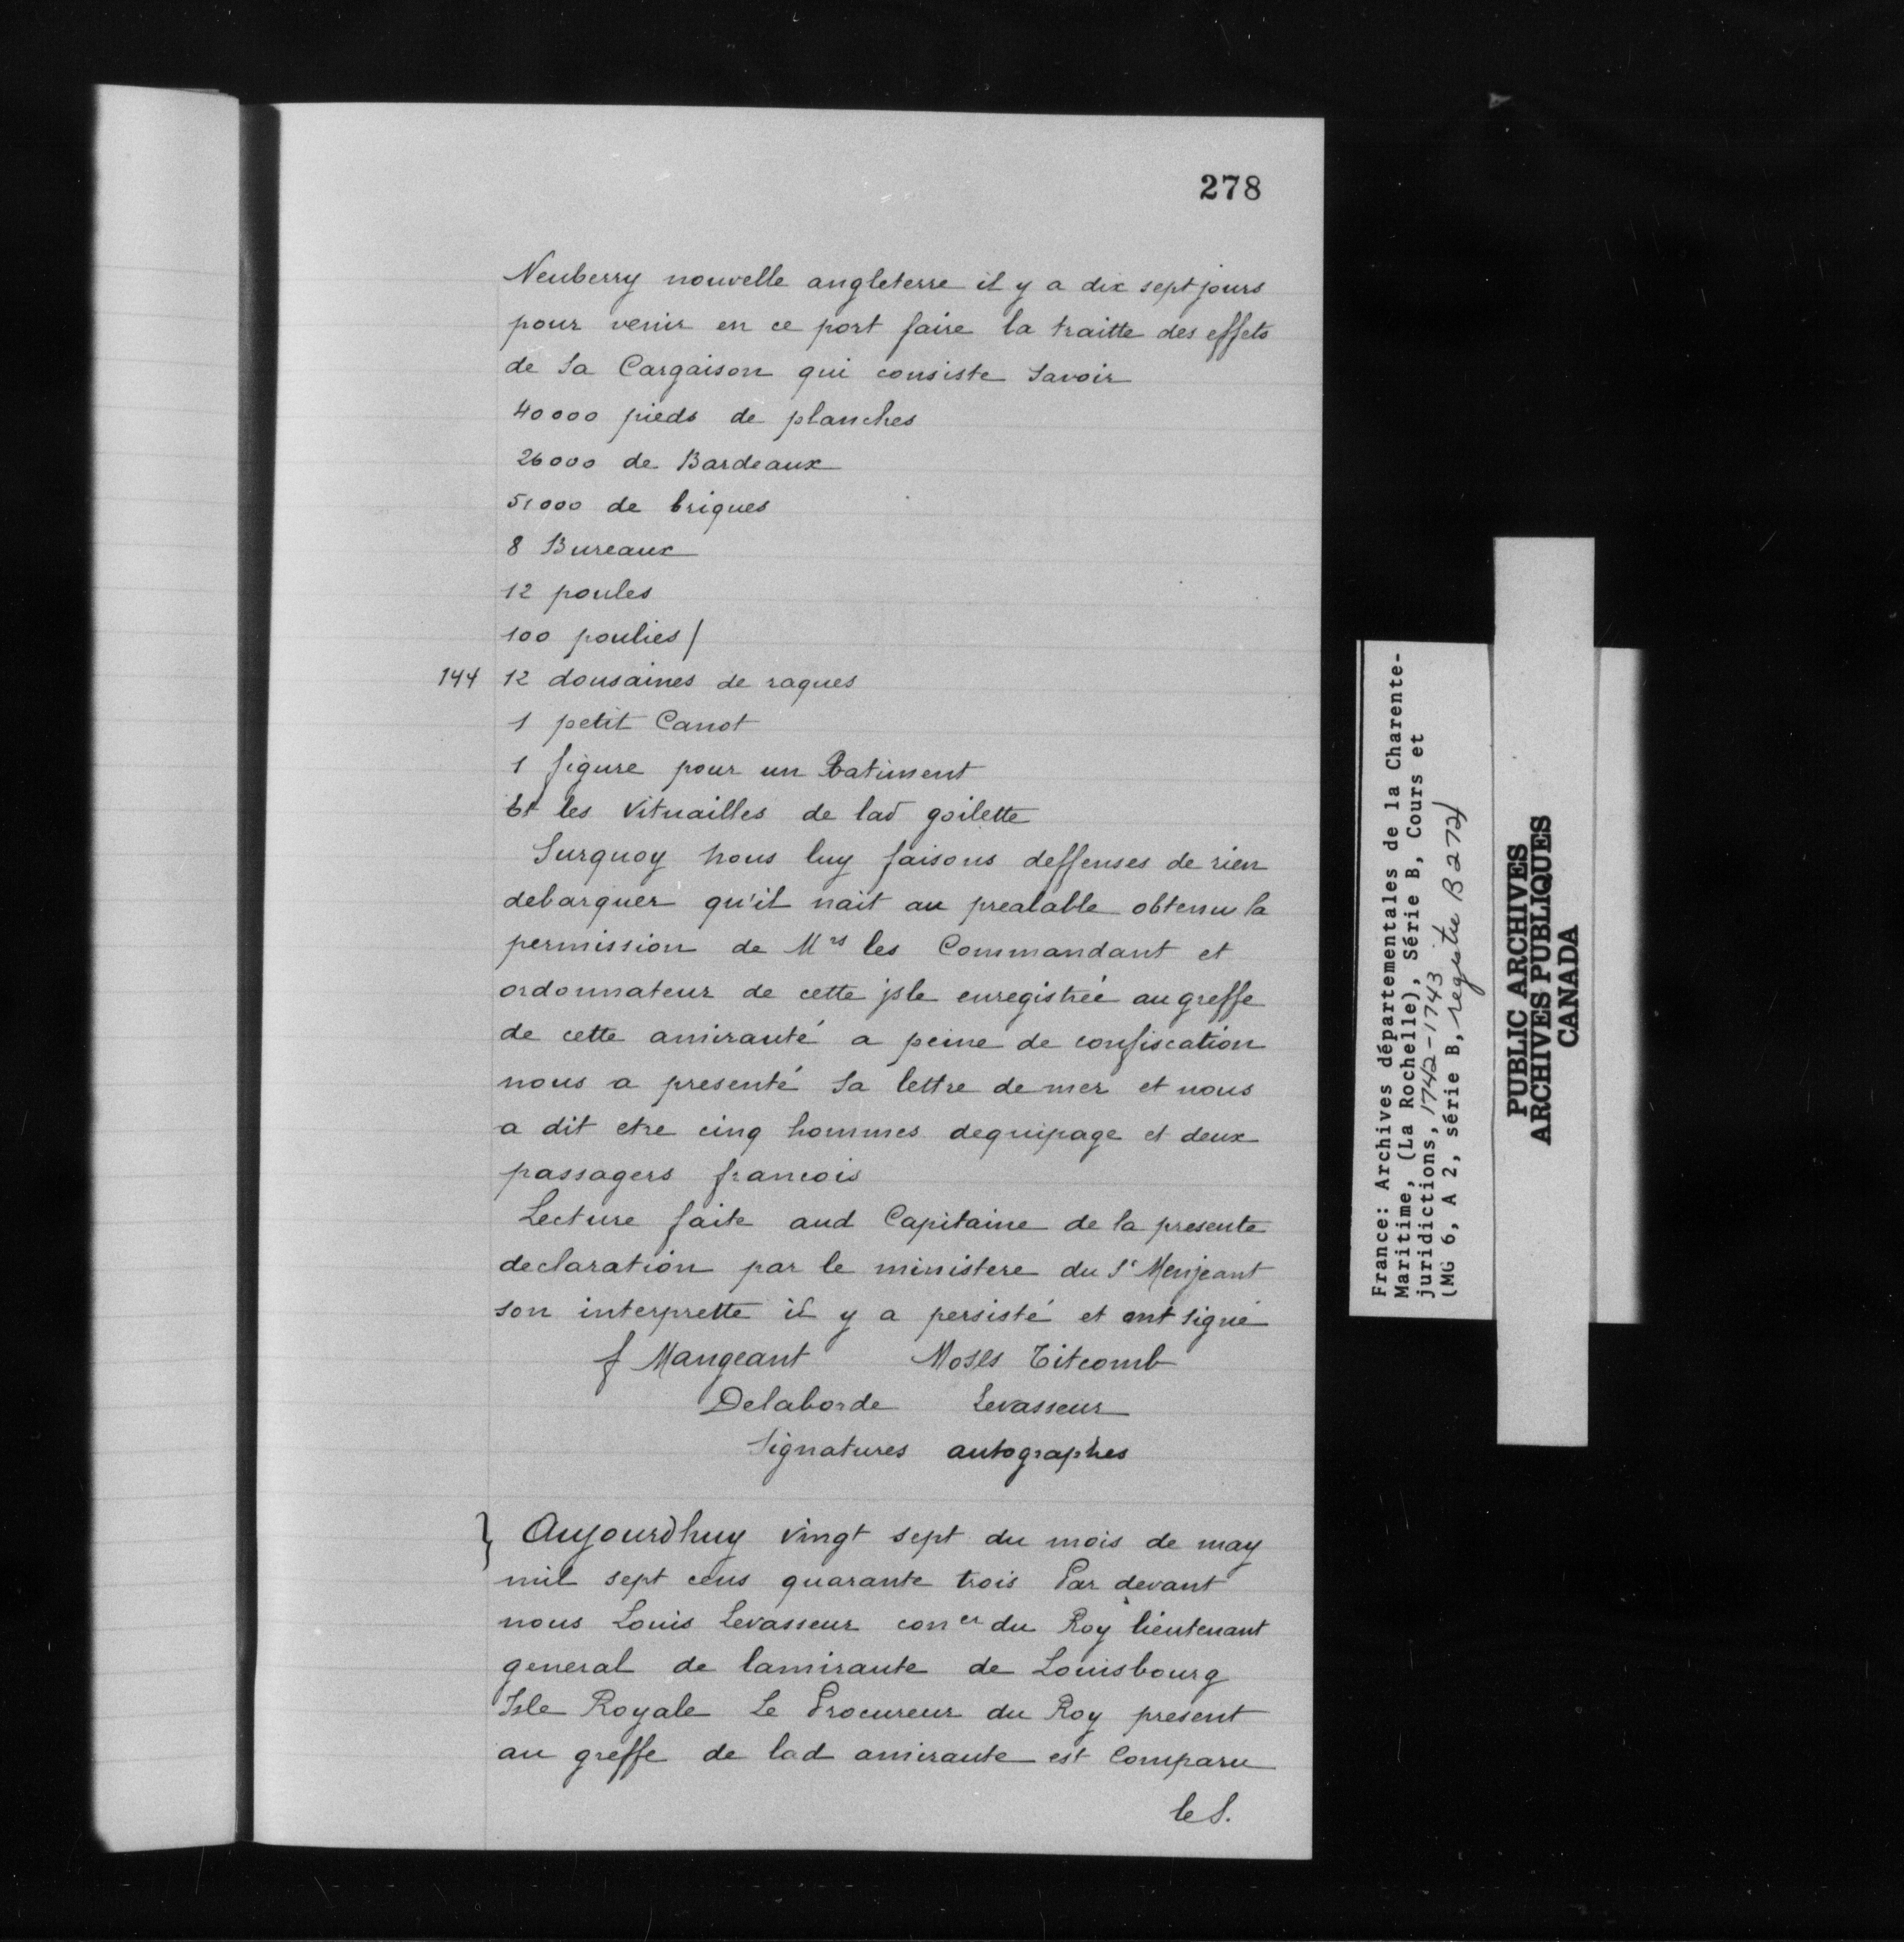 278
Neuberry nouvelle angleterre il y a dix sept jours
pour venir en ce port faire la traitte des effets
de sa Cargaison qui consiste savoir
40000 pieds de planches
26000 de Bardeaux
51000 de briques
8 Bureaux
12 poules
100 poulies /
144 12 dousaines de raques
1 petit Canot
1 figure pour un Batiment
Et les vituailles de lad goilette
Surquoy nous luy faisons deffenses de rien
debarquer qu'il nait au prealable obtenu la
permission de Mrs les Commandant et
ordonnateur de cette isle enregistrée au greffe
de cette amirauté a peine de confiscation
nous a presenté sa lettre de mer et nous
a dit etre cinq hommes dequipage et deux
passagers francois
Lecture faite aud Capitaine de la presente
declaration par le ministere du Sr Menjeant
son interprette il y a persisté et ont signé
f Mangeant Moses Titcomb
Delaborde Levasseur
Signatures autographes
} Aujourdhuy vingt sept du mois de may
mil sept cens quarante trois Par devant
nous Louis Levasseur coner du Roy lieutenant
general de lamiraute de Louisbourg
Isle Royale Le Procureur du Roy present
au greffe de lad amiraute est Comparu
le S.
France: Archives départementales de la Charente-
Maritime, (La Rochelle), Série B, Cours et
juridictions, 1742-1743
(MG 6, A 2, série B, registre B 272)
PUBLIC ARCHIVES
ARCHIVES PUBLIQUES
CANADA